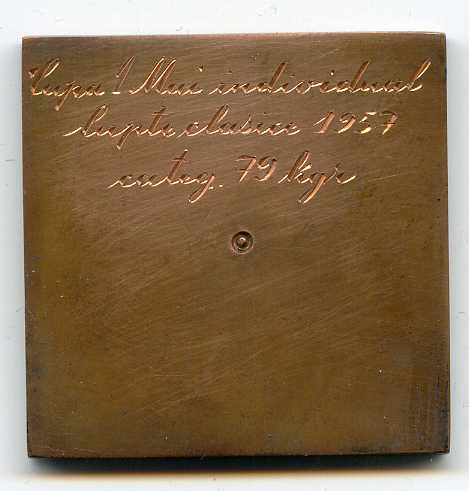 Cupa 1 Mai individual
lupte clasice 1957
categ. 79 kgr